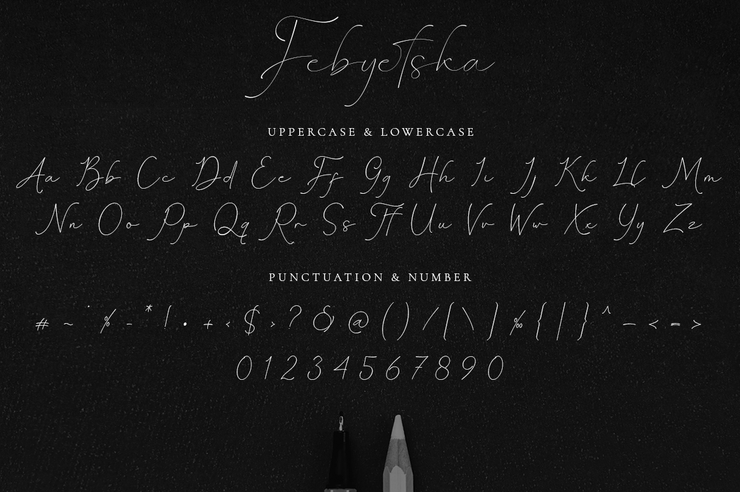 Febyetska
UPPERCASE & LOWERCASE
Aa Bb Cc Dd Ee Ff Gg Hh Ii Jj Kk Ll Mm
Nn Oo Pp Qq Rr Ss Tt Uu Vv Ww Xx Yy Zz
PUNCTUATION & NUMBER
# ~ ` % - * ! • + ‹ $ › ? & @ ( ) / [ \ ] ‰ { | } ^ – < = >
0 1 2 3 4 5 6 7 8 9 0